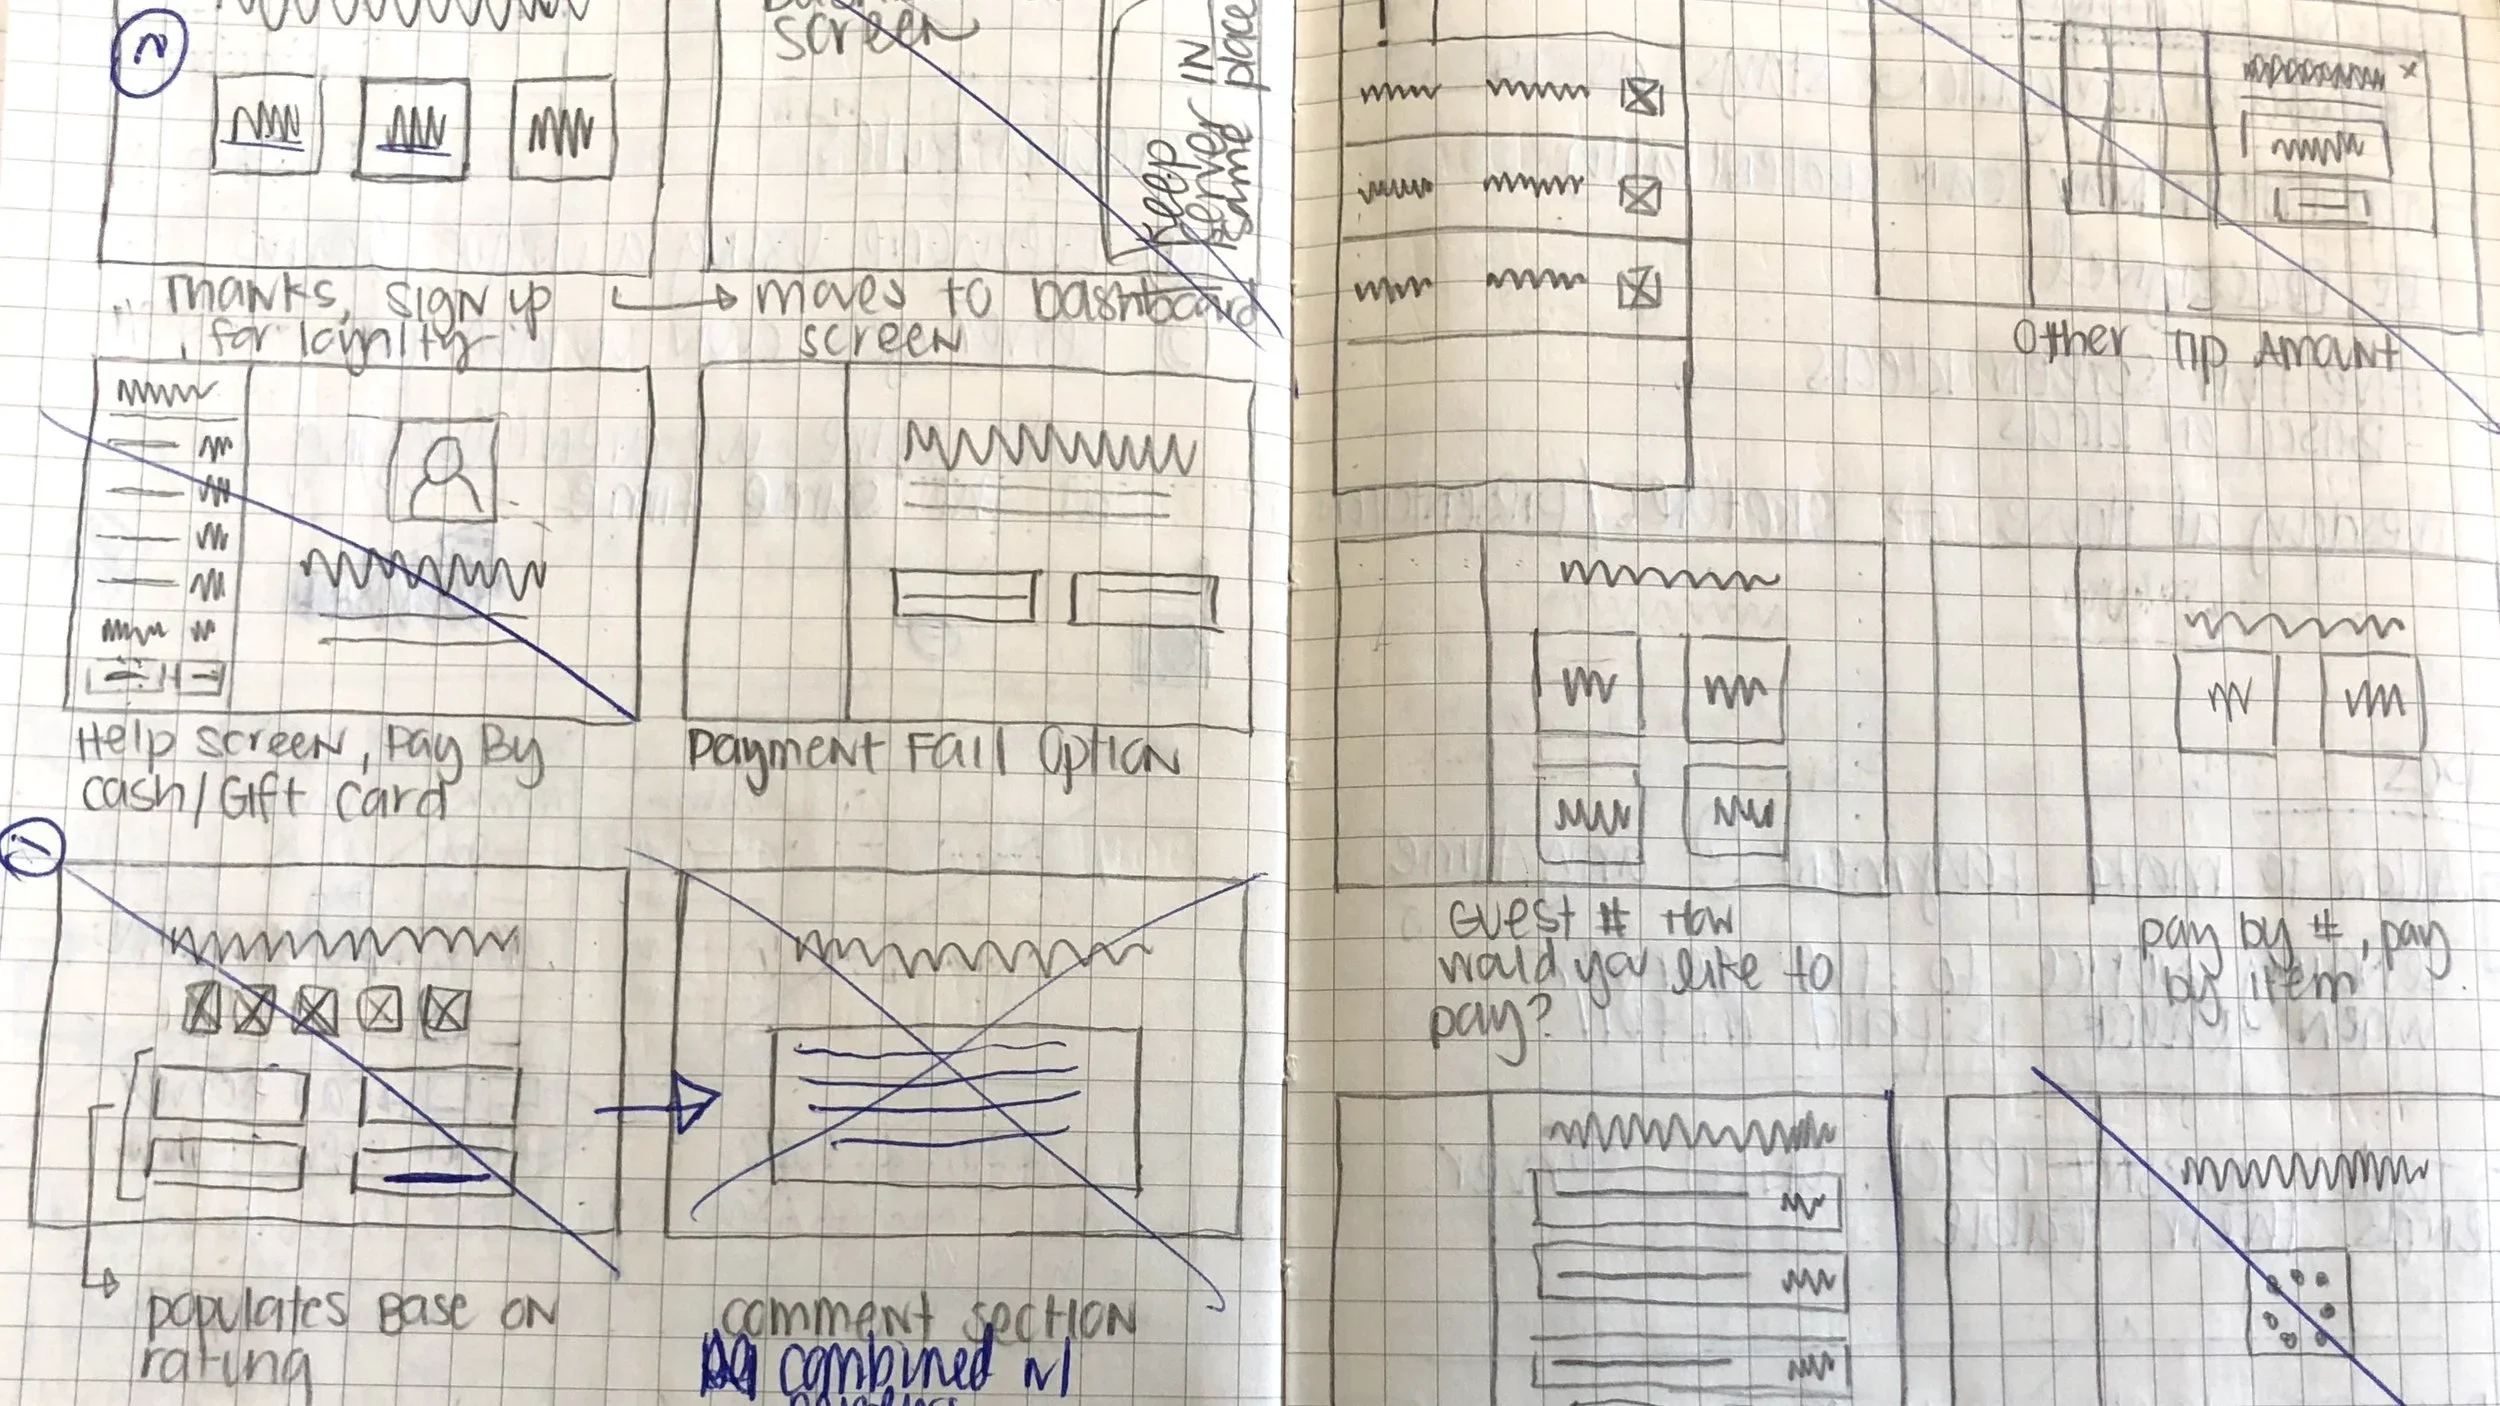 2
screen
Keep
server IN
same place
Thanks, sign up
for loyalty
moves to Dashboard
screen
Help screen, Pay By
cash/Gift Card
Payment Fail Option
1
populates Base on
rating
comment section
combined w/
Other Tip Amount
Guest # How
would you like to
pay?
pay by #, pay
by item